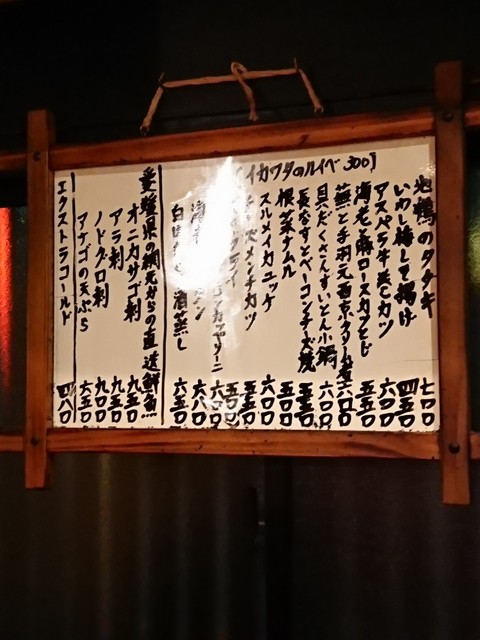 イカワタのルイベ 300
地鴨のタタキ 七〇〇
いわし梅しそ揚け 四五〇
アスパラ牛巻きカツ 六〇〇
海老と豚ロースカツとじ 五五〇
蕪と手羽元西京クリーム煮 六〇〇
具だくさんすいとん小鍋 六〇〇
長なすとベーコンチーズ焼 五五〇
根菜ナムル 五〇〇
スルメイカユッケ 六〇〇
メンチカツ 五五〇
五〇〇
カッヤトーニ 六〇〇
六〇〇
白 酒蒸し 六五〇
愛媛県の網元からの直送鮮魚!!
オニカサゴ刺 九五〇
アラ刺 九五〇
ノドグロ刺 九〇〇
アナゴの天ぷら 六五〇
エクストラコールド 四八〇